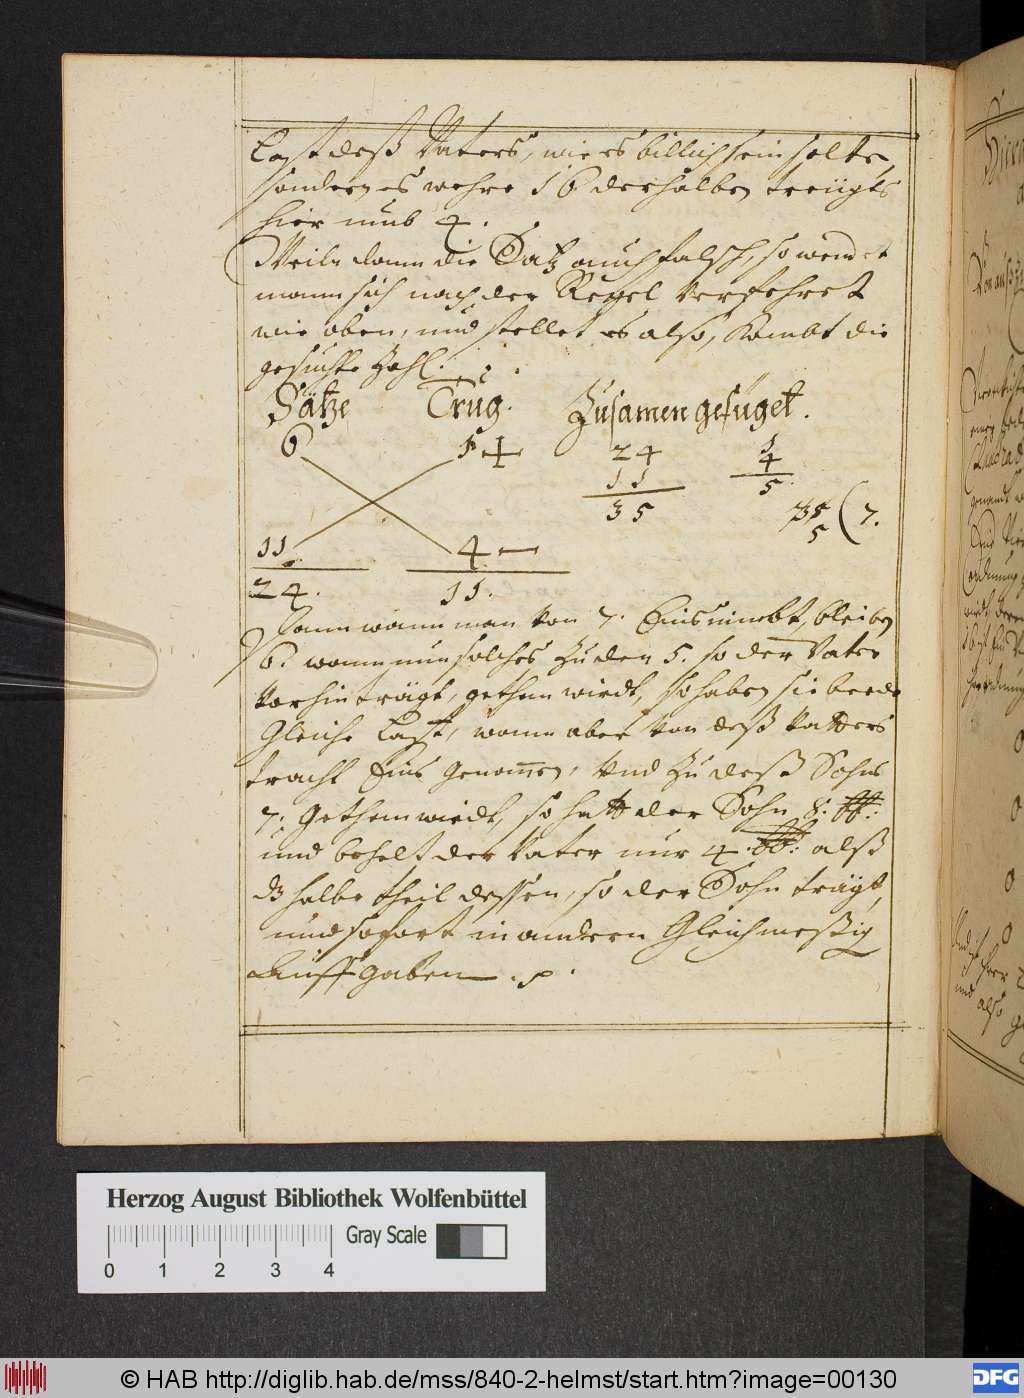 Last deß Vaters, wie es billich sein solte,
sondern es wehre 16 derhalben treügts
hier umb 4.
Weiln dann die Satz auch falsch, so wendet
mann sich nach der Regel Verfehret
wie oben, und stellet es also, kombt die
gesuchte Zahl.
Sätze Trüg. Zusamen gefüget.
6 1 + 24 1
11 4
35 5
35 ( 7.
5
11 4 —
24. 11.
Dann wann man von 7. Eins nimbt, bleiben
6. wann nun solches zu den 5. so der Vater
vorhin trägt, gethan wirdt, so haben sie beede
Gleiche Last, wann aber von deß Vatters
tracht Eins genommen, Und zu deß Sohns
7. gethan wirdt, so hatt der Sohn 8. ℔.
und behelt der Vater nur 4. ℔: alß
dz halbe theil dessen, so der Sohn trägt,
und sofort in andern Gleichmeßig
Auffgaben.
Herzog August Bibliothek Wolfenbüttel
Gray Scale
0 1 2 3 4
© HAB http://diglib.hab.de/mss/840-2-helmst/start.htm?image=00130
DFG